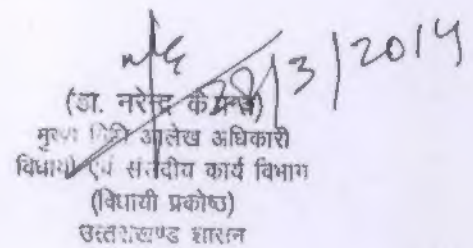 28/3/2014
(डा. नरेन्द्र
मुख्य आलेख अधिकारी
विधायी एवं संसदीय कार्य विभाग
(विधायी प्रकोष्ठ)
उत्तराखण्ड शासन